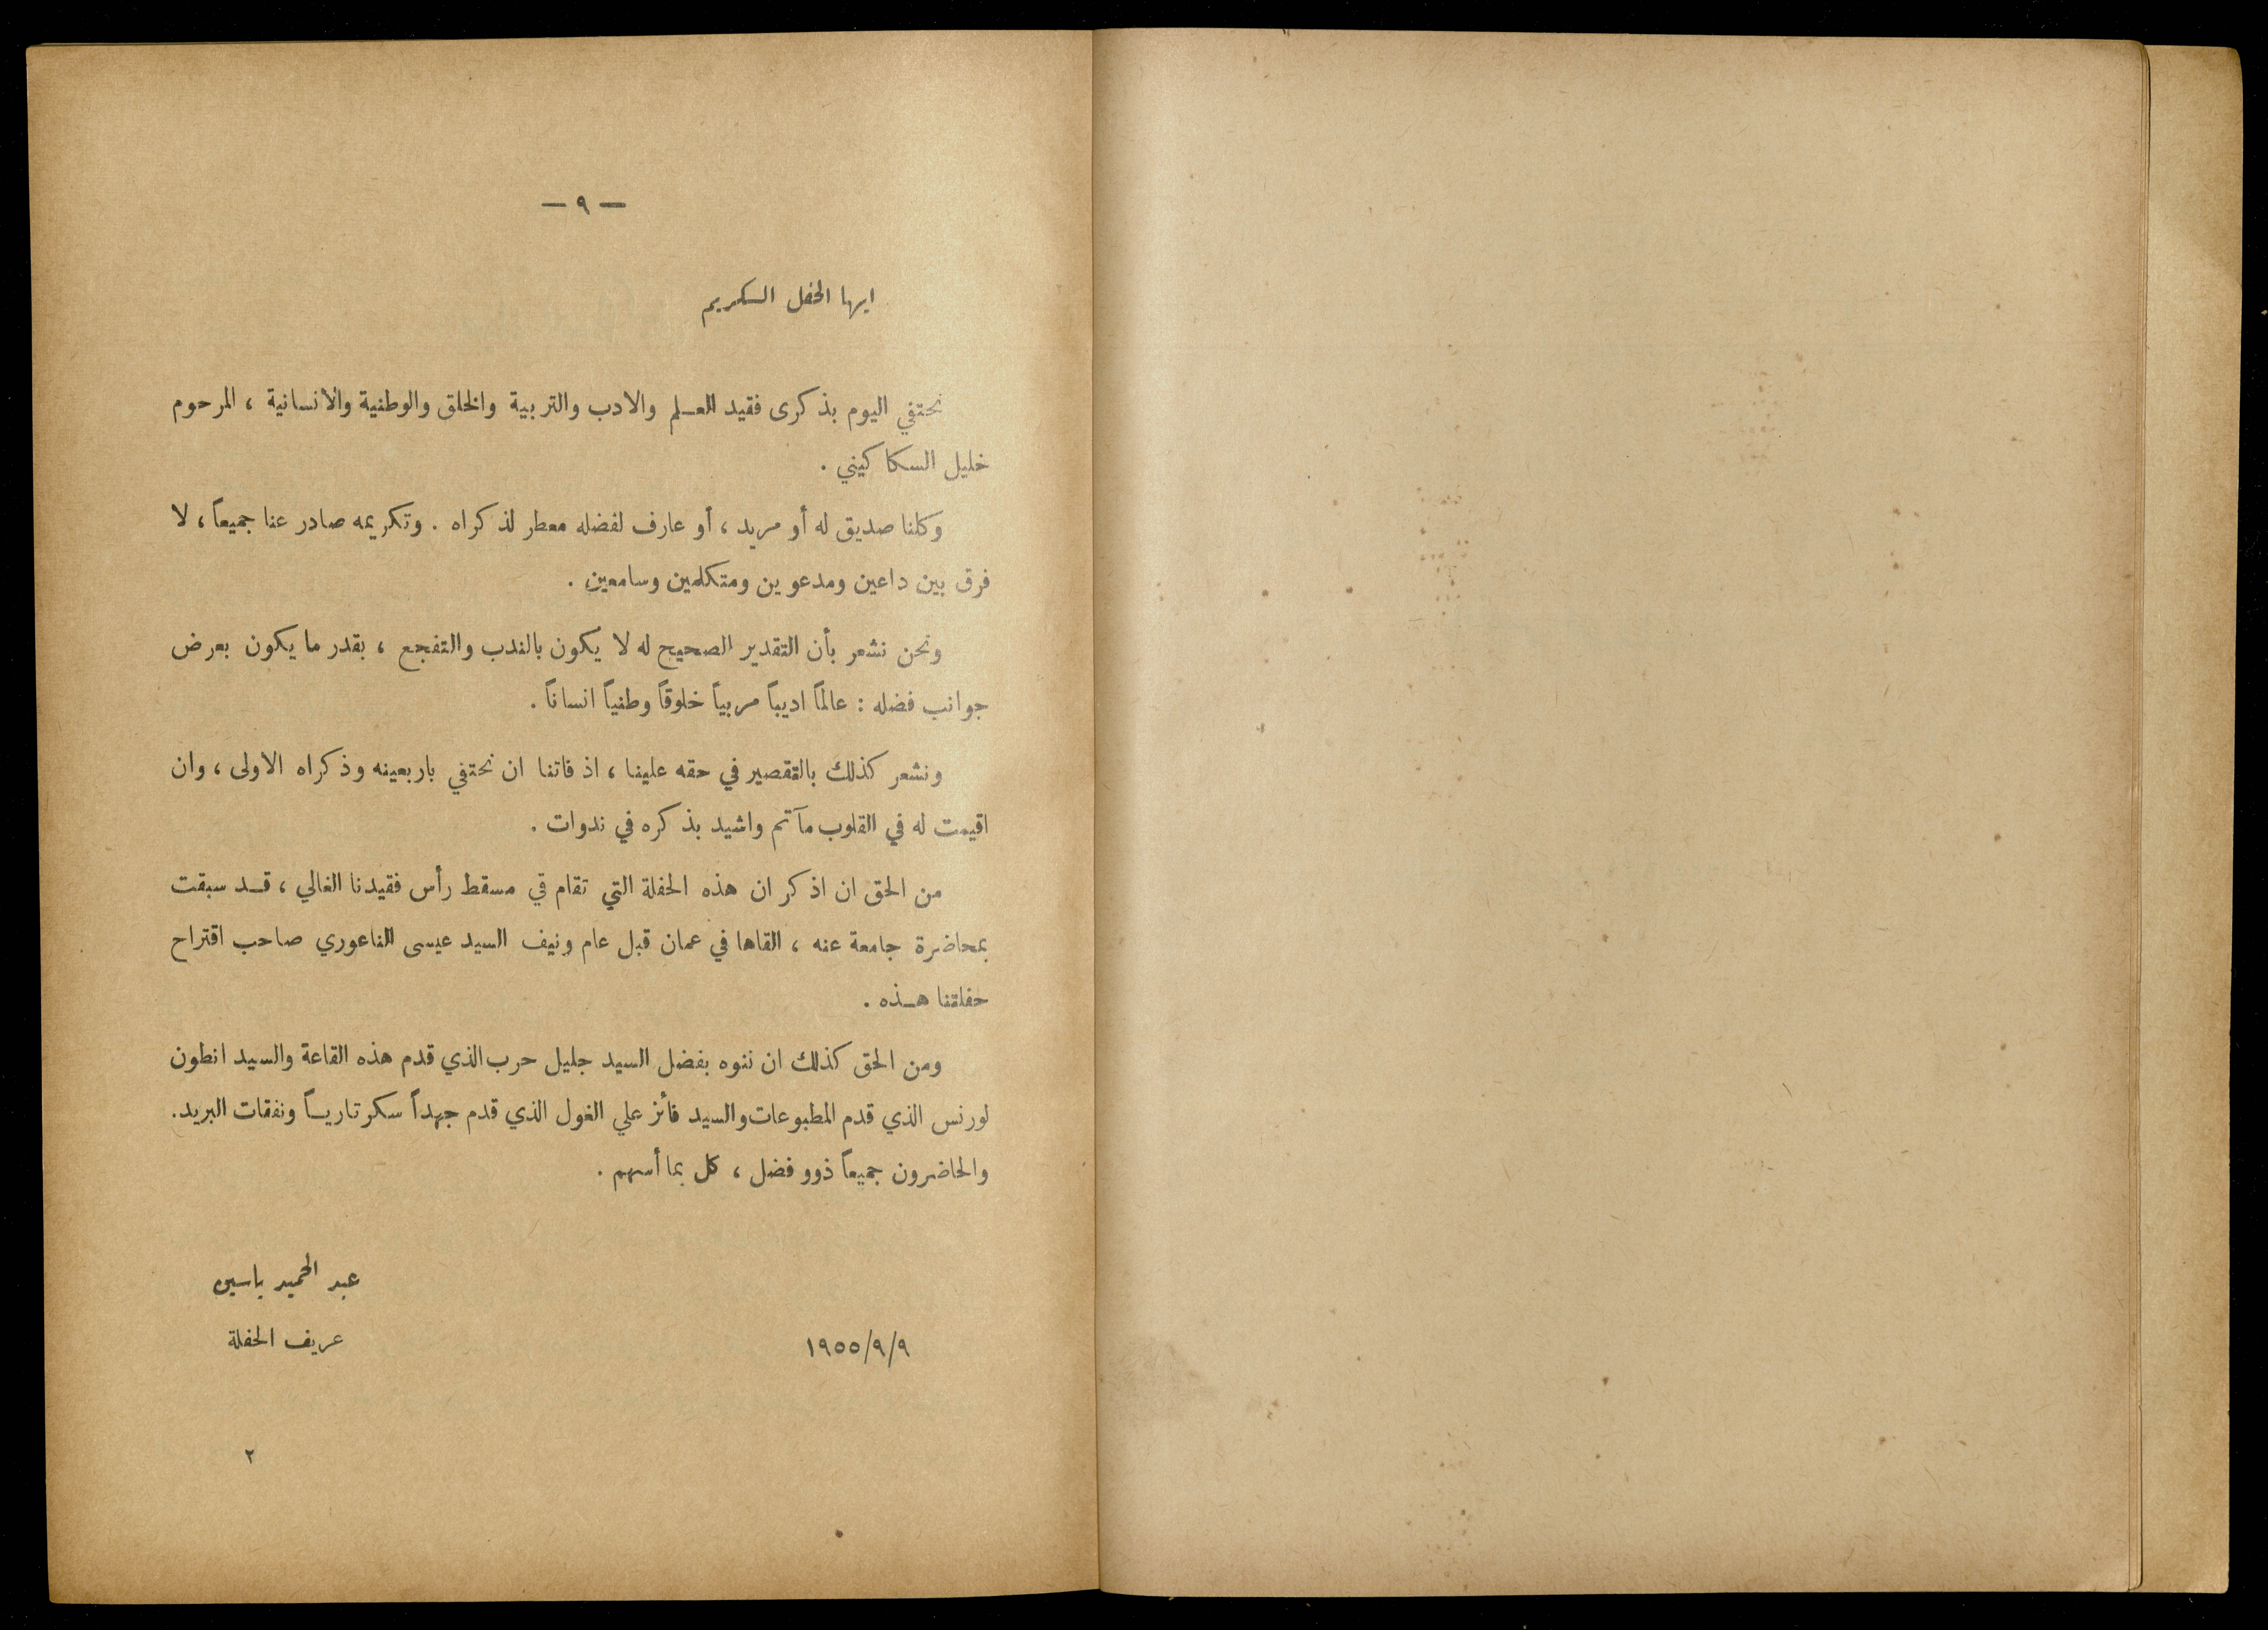 — ٩ —
ايها الحفل الكريم
نحتفي اليوم بذكرى فقيد العلم والادب والتربية والخلق والوطنية والأنسانية ، المرحوم
خليل السكاكيني .
وكلنا صديق له أو مريد ، أو عارف لفضله معطر لذكراه . وتكريمه صادر عنا جميعاً ، لا
فرق بين داعين ومدعوين ومتكلمين وسامعين .
ونحن نشعر بأن التقدير الصحيح له لا يكون بالندب والتفجع ، بقدر ما يكون بعرض
جوانب فضله : عالماً اديباً مربياً خلوقاً وطنياً انساناً .
ونشعر كذلك بالتقصير في حقه علينا ، اذ فاتنا ان نحتفي باربعينه وذكراه الاولى ، وان
اقيمت له في القلوب مآتم واشيد بذكره في ندوات .
من الحق ان اذكر ان هذه الحفلة التي تقام في مسقط رأس فقيدنا الغالي ، قد سبقت
بمحاضرة جامعة عنه ، القاها في عمان قبل عام ونيف السيد عيسى الناعوري صاحب اقتراح
حفلتنا هذه .
ومن الحق كذلك ان ننوه بفضل السيد جليل حرب الذي قدم هذه القاعة والسيد انطون
لورنس الذي قدم المطبوعات والسيد فائز علي الغول الذي قدم جهداً سكرتارياً ونفقات البريد.
والحاضرون جميعاً ذوو فضل ، كل بما أسهم .
عبد الحميد ياسين
عريف الحفلة
١٩٥٥/٩/٩
٢